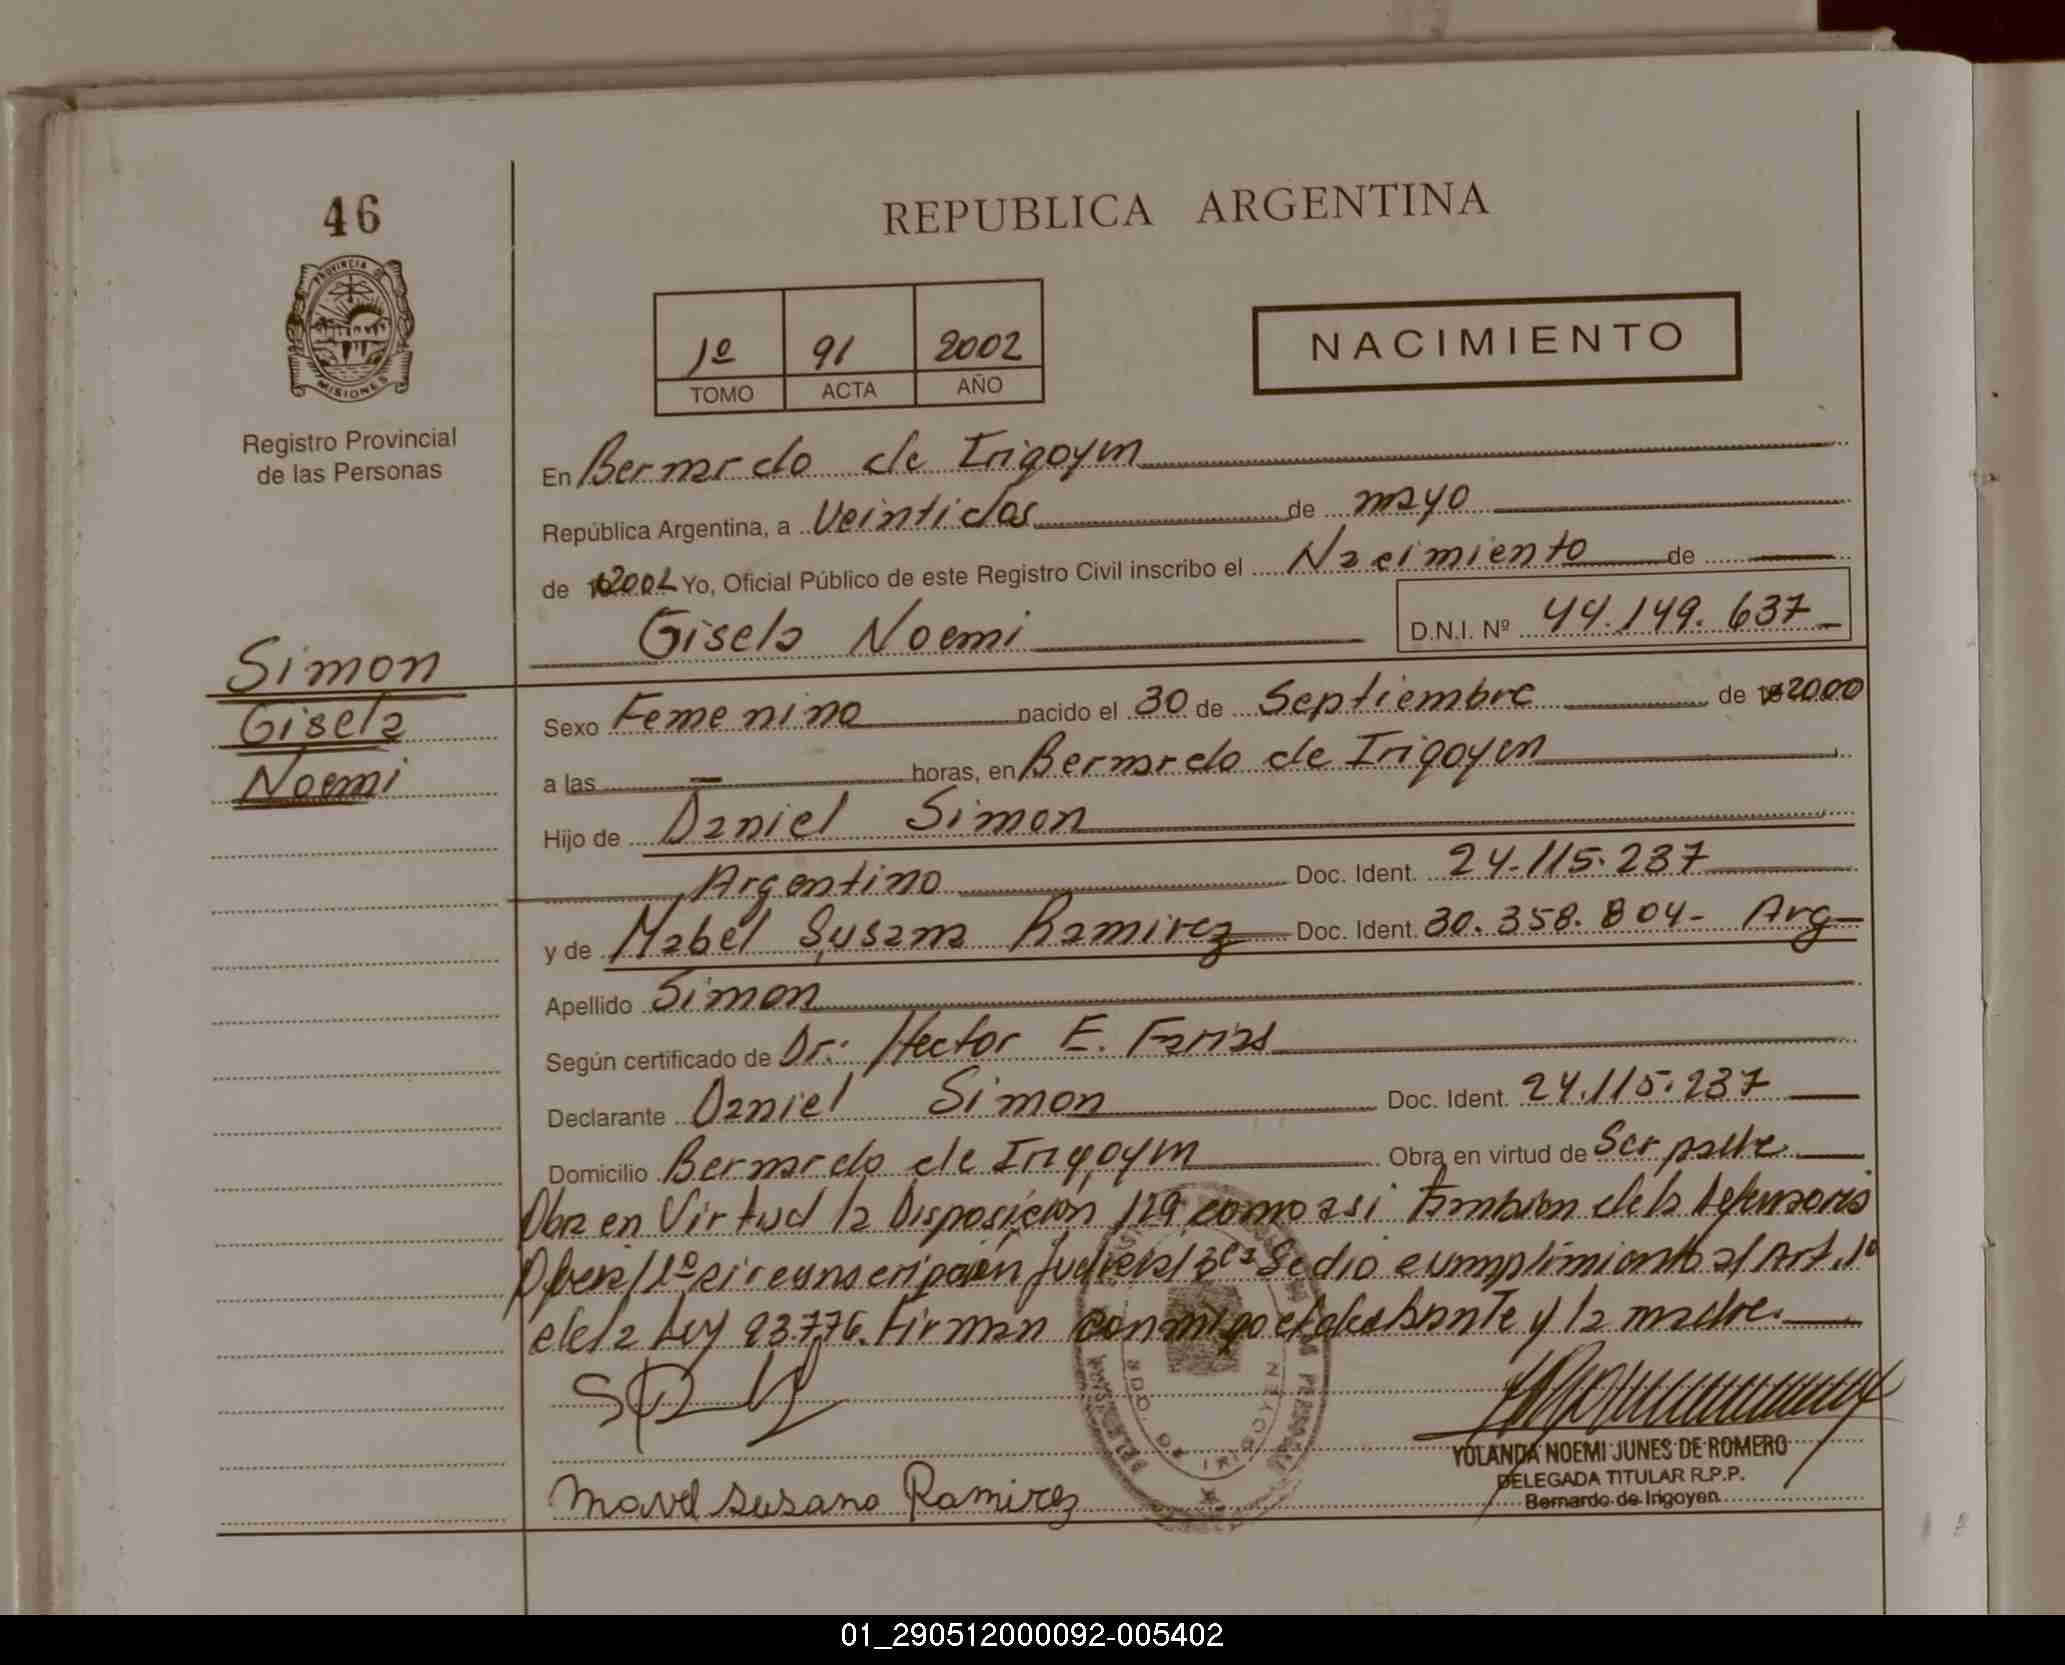 46
REPUBLICA ARGENTINA
PROVINCIA DE
MISIONES
Registro Provincial
de las Personas
1º 91 2002
TOMO ACTA AÑO
NACIMIENTO
En Bernardo de Irigoyen
República Argentina, a Veintidos de mayo
de 2002 Yo, Oficial Público de este Registro Civil inscribo el Nacimiento de
Gisela Noemi D.N.I. Nº 44.149.637
Simon
Gisela
Noemi
Sexo Femenino nacido el 30 de Septiembre de 2000
a las - horas, en Bernardo de Irigoyen
Hijo de Daniel Simon
Argentino Doc. Ident. 24.115.237
y de Mabel Susana Ramirez Doc. Ident. 30.358.804- Arg
Apellido Simon
Según certificado de Dr. Hector E. Farias
Declarante Daniel Simon Doc. Ident. 24.115.237
Domicilio Bernardo de Irigoyen Obra en virtud de Ser padre
Obra en Virtud la Disposición 129 como asi tambien de la Defensoria
Oficial 1º circunscripción Judicial Se dio cumplimiento al Art. 1º
de la Ley 23.776. Firman conmigo el declarante y la madre.
Mavel Susana Ramirez
YOLANDA NOEMI JUNES DE ROMERO
DELEGADA TITULAR R.P.P.
Bernardo de Irigoyen
01_290512000092-005402